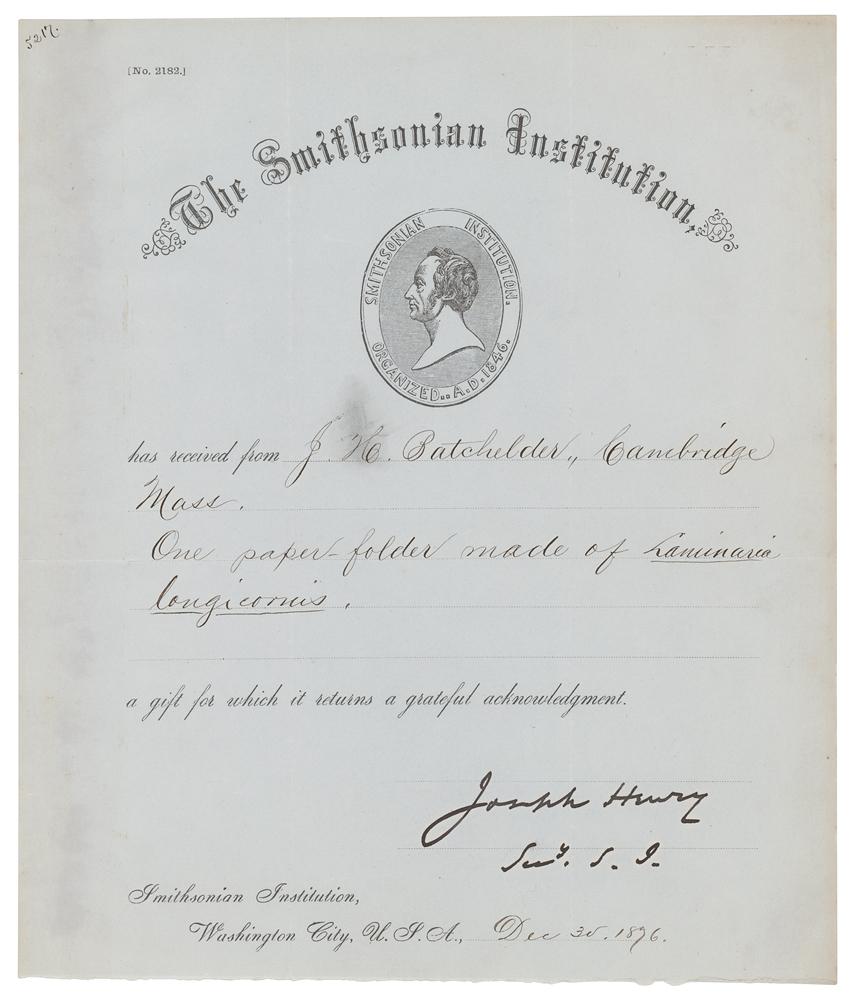 5217.
[No. 2182.]
The Smithsonian Institution,
SMITHSONIAN INSTITUTION.
ORGANIZED.. A.D. 1846.
has received from J. H. Batchelder,, Cambridge
Mass.
One paper-folder made of Laminaria
longicornis.
a gift for which it returns a grateful acknowledgment.
Joseph Henry
Secy. S. I.
Smithsonian Institution,
Washington City, U. S. A., Dec 30. 1876.